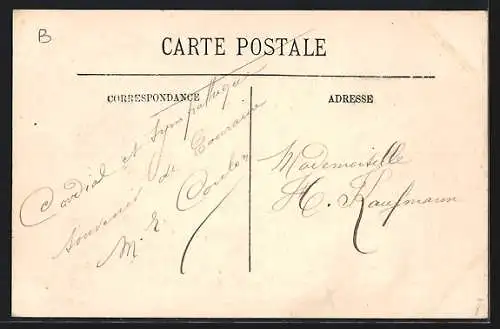 B
CARTE POSTALE
CORRESPONDANCE
ADRESSE
Cordial et sympathique
souvenir de Touraine
M. E.
Mademoiselle
H. Kaufmann